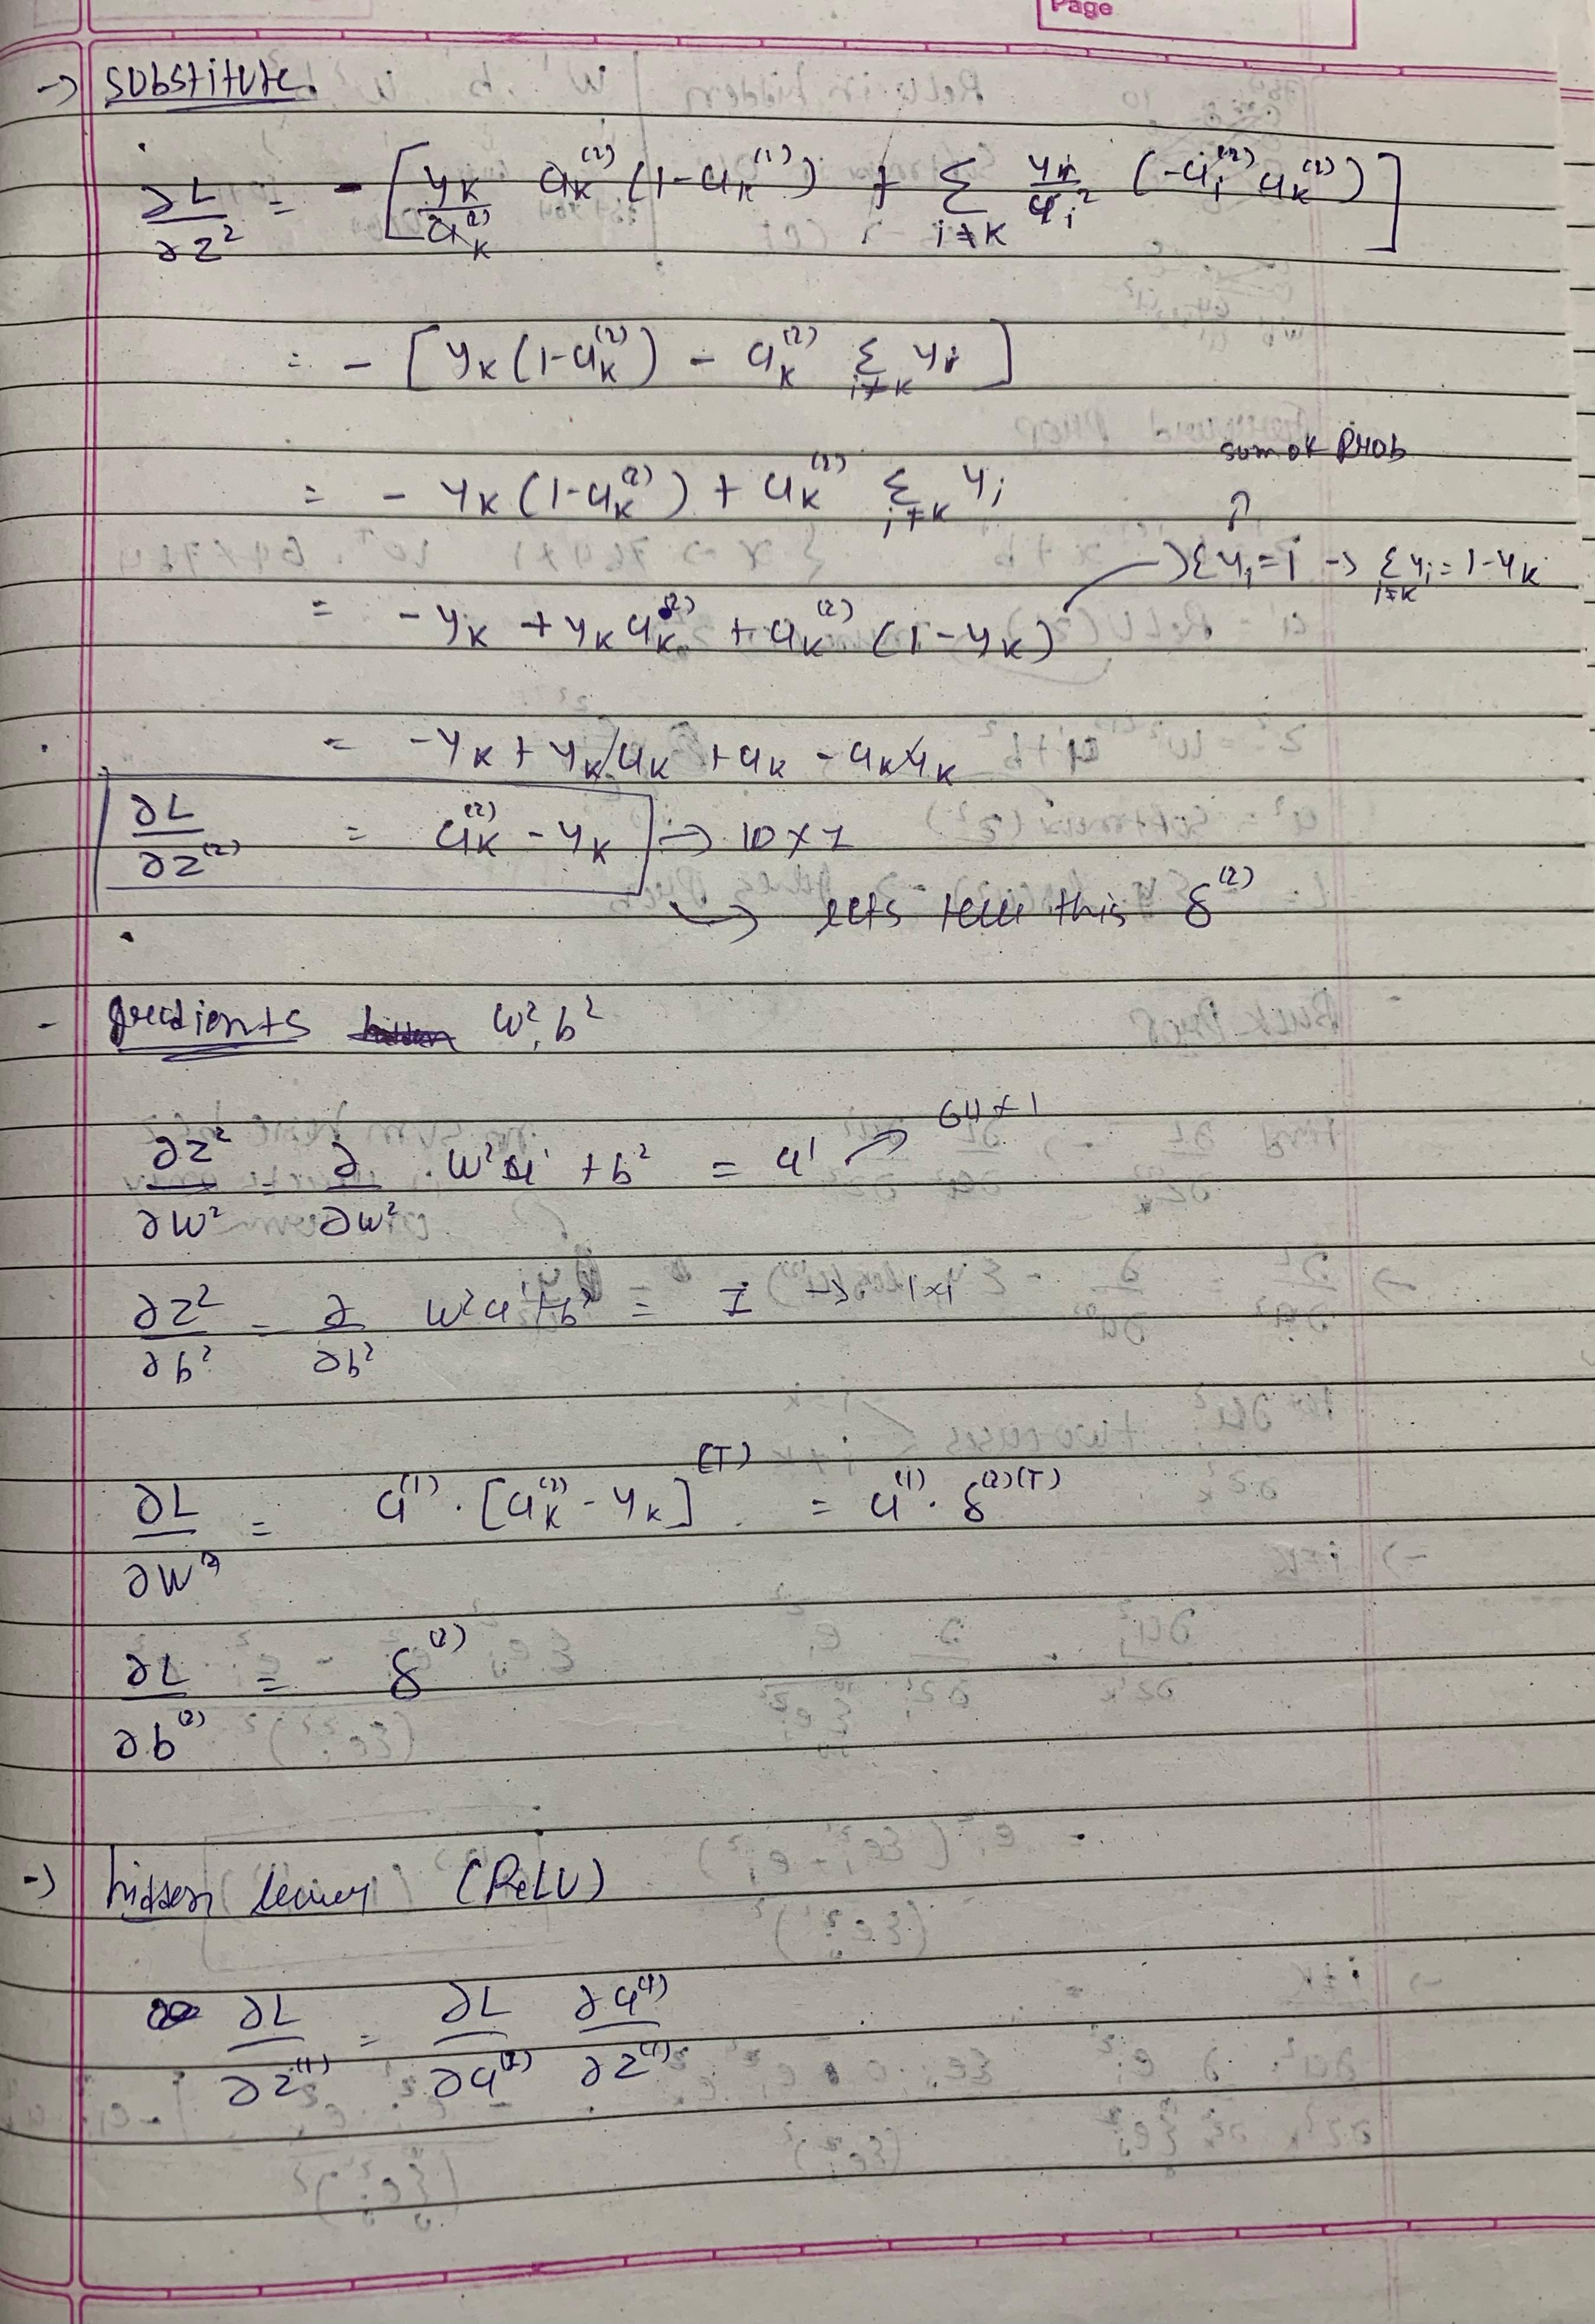 Page
-> substitute
∂L/∂z² = - [ yₖ/aₖ⁽²⁾ aₖ⁽²⁾ (1-aₖ⁽¹⁾) + Σ_{i≠k} yₖ/aᵢ² (-aᵢ⁽²⁾ aₖ⁽²⁾) ]
= - [ yₖ (1-aₖ⁽²⁾) - aₖ⁽²⁾ Σ_{i≠k} yᵢ ]
sum of prob
= - yₖ (1-aₖ⁽²⁾) + aₖ⁽²⁾ Σ_{i≠k} yᵢ
↑
Σyᵢ = 1 -> Σ_{i≠k} yᵢ = 1-yₖ
= -yₖ + yₖ aₖ⁽²⁾ + aₖ⁽²⁾ (1-yₖ)
= -yₖ + yₖ aₖ + aₖ - aₖ yₖ
∂L/∂z⁽²⁾ = aₖ⁽²⁾ - yₖ -> 10×1
-> lets tell this δ⁽²⁾
- gradients w², b²
∂z²/∂w² = ∂/∂w² · w²a¹ + b² = a¹ -> 64×1
∂z²/∂b² = ∂/∂b² w²a¹ + b² = 1 -> 1×1
∂L/∂w² = a⁽¹⁾ · [aₖ⁽²⁾ - yₖ]⁽ᵀ⁾ = a⁽¹⁾ · δ⁽²⁾⁽ᵀ⁾
∂L/∂b⁽²⁾ = δ⁽²⁾
-> hidden layer (ReLU)
∂L/∂z⁽¹⁾ = ∂L/∂a⁽¹⁾ ∂a⁽¹⁾/∂z⁽¹⁾